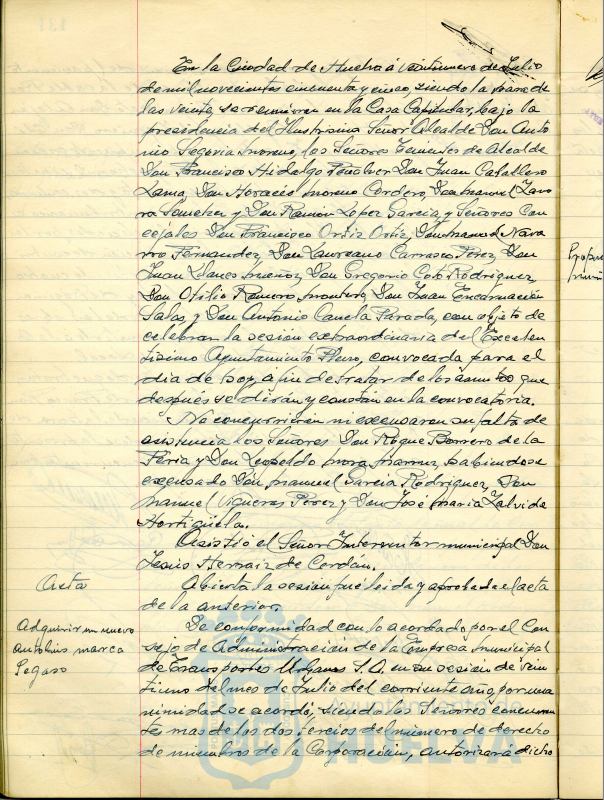 En la Ciudad de Huelva á veintinueve de Julio
de mil novecientos cincuenta y cinco, siendo la hora de
las veinte, se reunieron en la Casa Capitular, bajo la
presidencia del Ilustrísimo Señor Alcalde Don Anto
nio Segovia Moreno, los Señores Tenientes de Alcalde
Don Francisco Hidalgo Peñalver Don Juan Caballero
Lama, Don Horacio Moreno Cordero, Don Manuel Zamo
ra Sanchez y Don Ramón López García y Señores Con
cejales Don Francisco Ortiz Ortiz, Don Manuel Nava
rro Fernandez, Don Laureano Carrasco Perez, Don
Juan Llanes Muñoz, Don Gregorio Coto Rodriguez
Don Otilio Romero Montero, Don Juan Encarnación
Salas y Don Antonio Canela Parada, con objeto de
celebrar la sesión extraordinaria del Excelen
tísimo Ayuntamiento Pleno, convocada para el
dia de hoy, á fin de tratar de los asuntos que
después se dirán y constan en la convocatoria.
No concurrieron ni excusaron su falta de
asistencia los Señores Don Roque Barrero de la
Feria y Don Leopoldo Mora habiendose
excusado Don Manuel García Rodriguez, Don
Manuel Vigueras Perez y Don José Maria Zalvide
Hortigüela.
Asistió el Señor Interventor municipal Don
Jesús Hernaiz de Cordán.
Acta
Abierta la sesión fué leida y aprobada el acta
de la anterior.
Adquirir un nuevo
autobús marca
Pegaso
De conformidad con lo acordado por el Con
sejo de Administración de la Empresa Municipal
de Transportes Urbanos S.A. en su sesión de vein
tiuno del mes de Julio del corriente año, por una
nimidad se acordó, siendo los Señores concurren
tes mas de los dos tercios del número de derecho
de miembros de la Corporación, autorizar a dicho